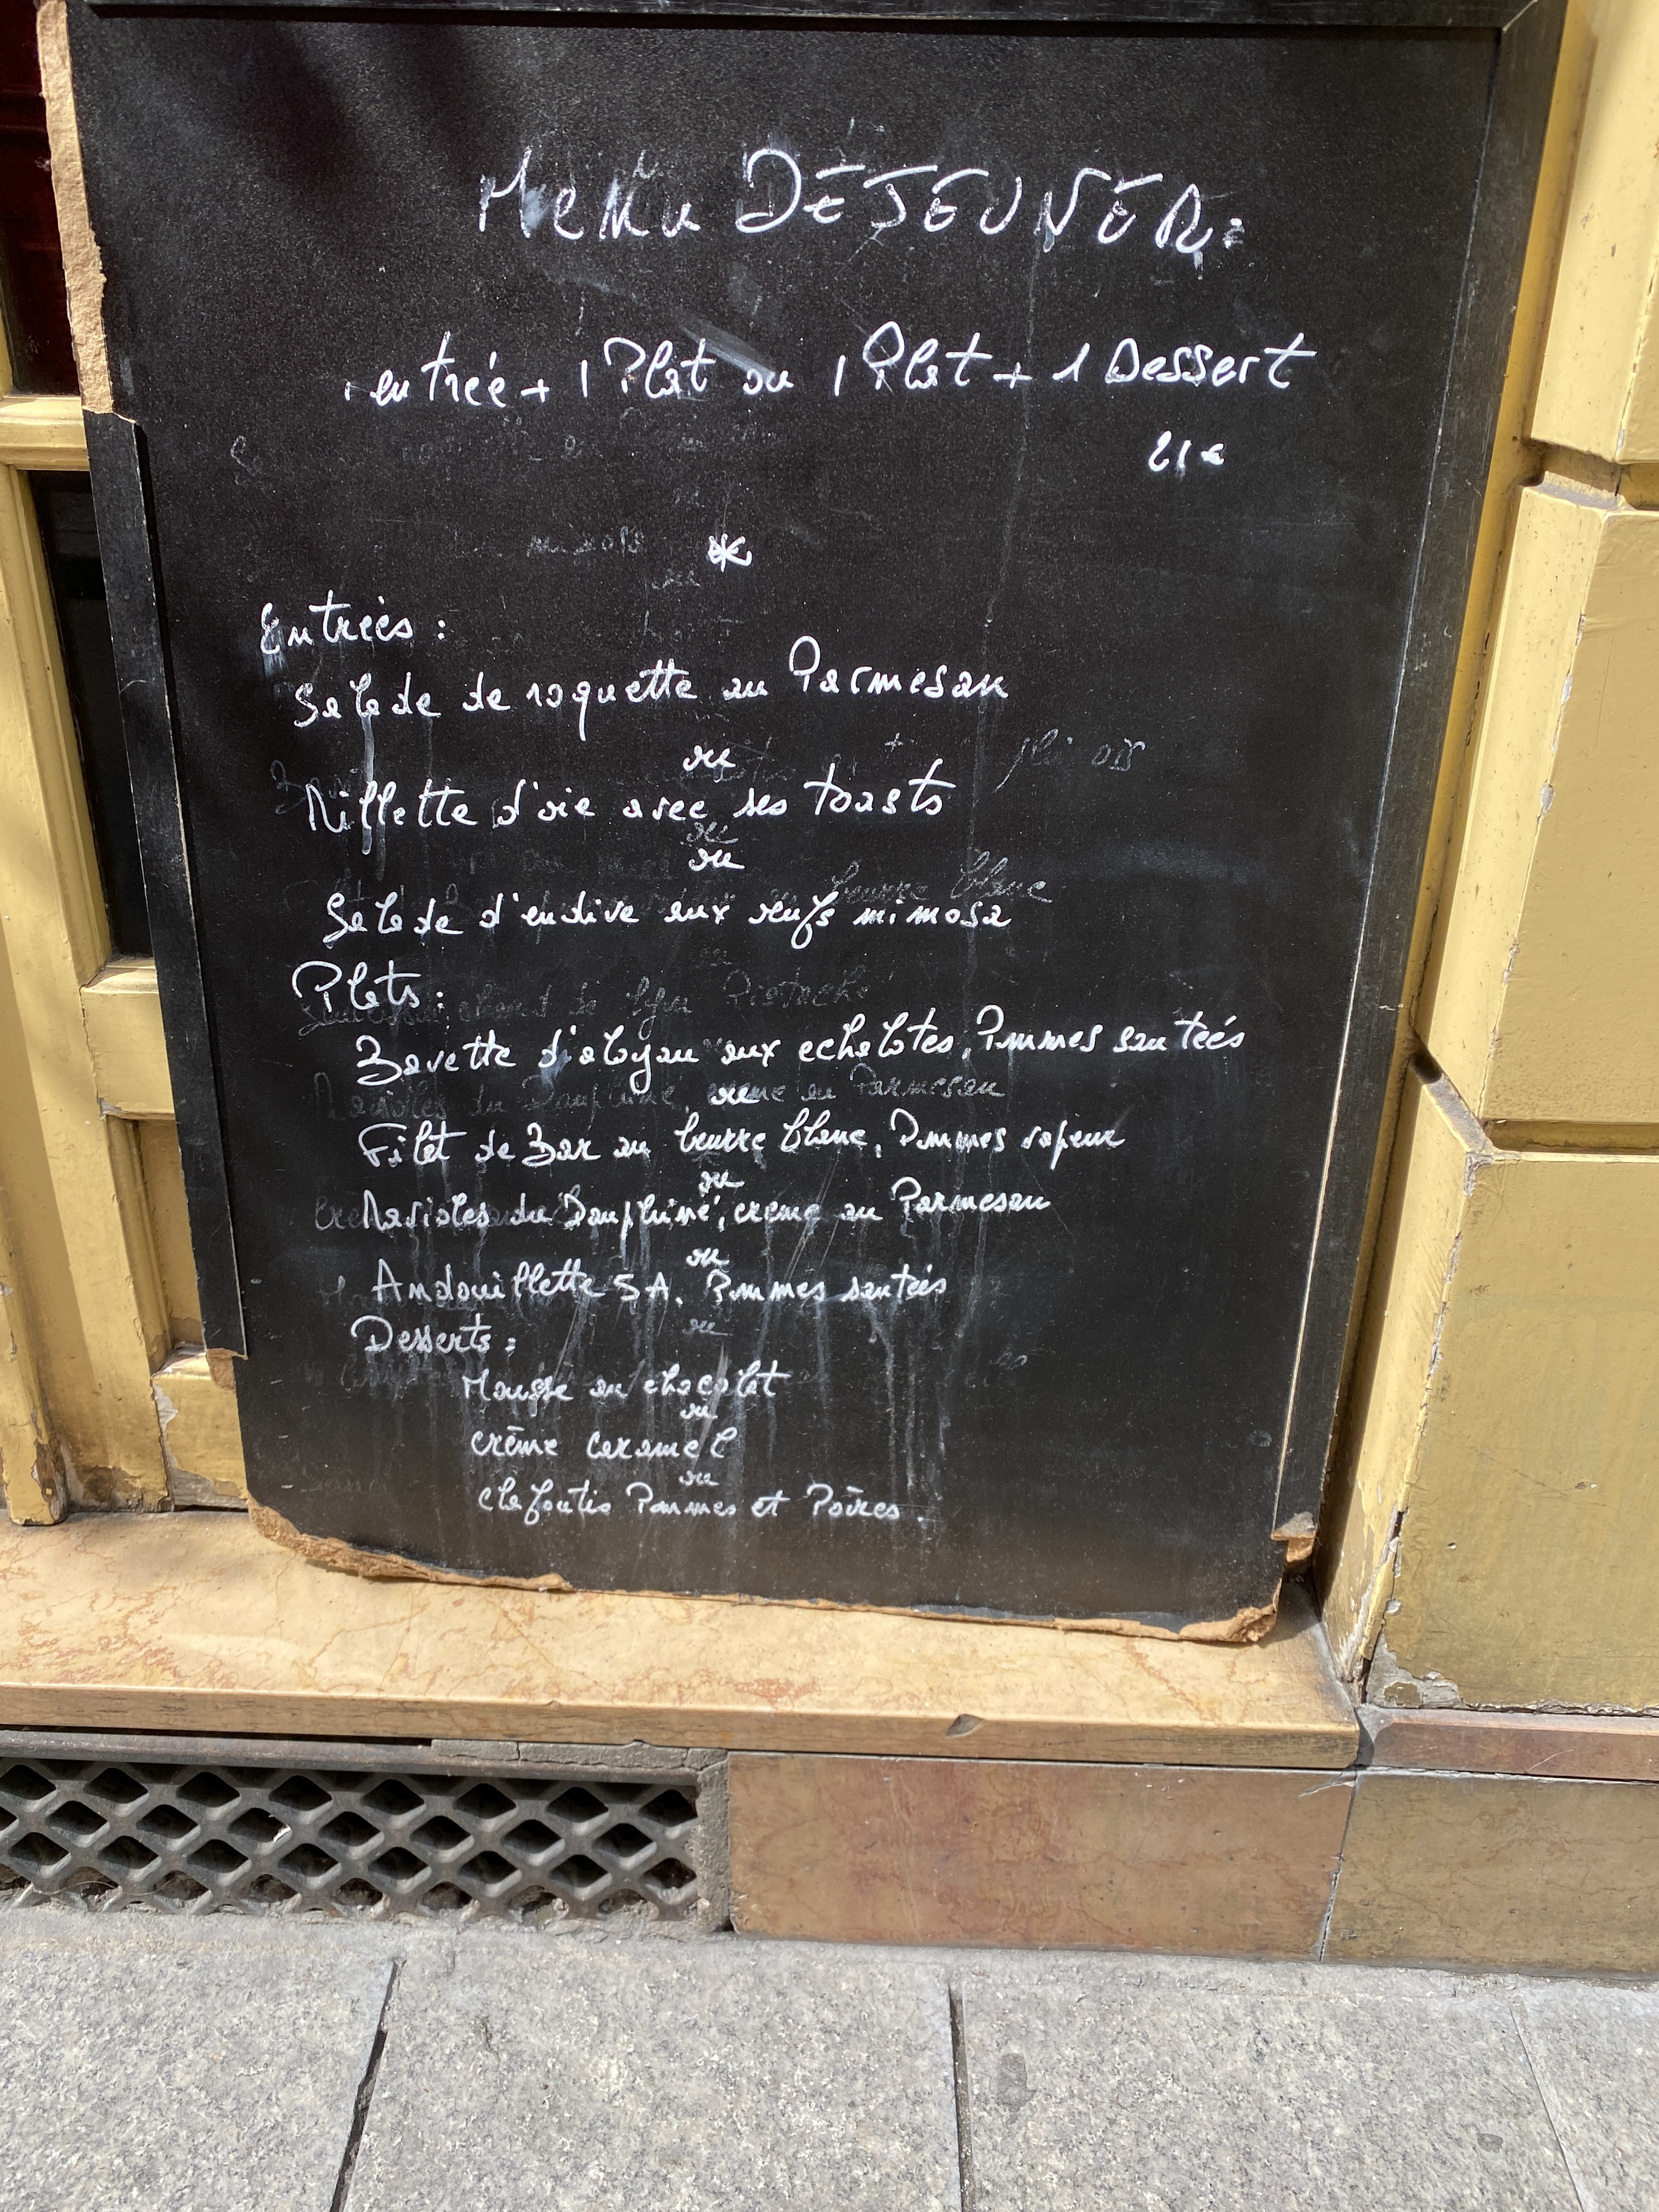 Menu DÉJEUNER:
1 entrée + 1 Plat ou 1 Plat + 1 Dessert
21€
*
Entrées :
Salade de roquette au Parmesan
ou
Rillette d'oie avec ses toasts
ou
Salade d'endive aux oeufs mimosa
Plats :
Bavette d'aloyau aux echalotes, Pommes sautées
ou
Filet de Bar au beurre blanc, Pommes vapeur
ou
Ravioles du Dauphiné, crème au Parmesan
ou
Andouillette 5A, Pommes sautées
Desserts :
Mousse au chocolat
ou
crème caramel
ou
clafoutis Pommes et Poires.